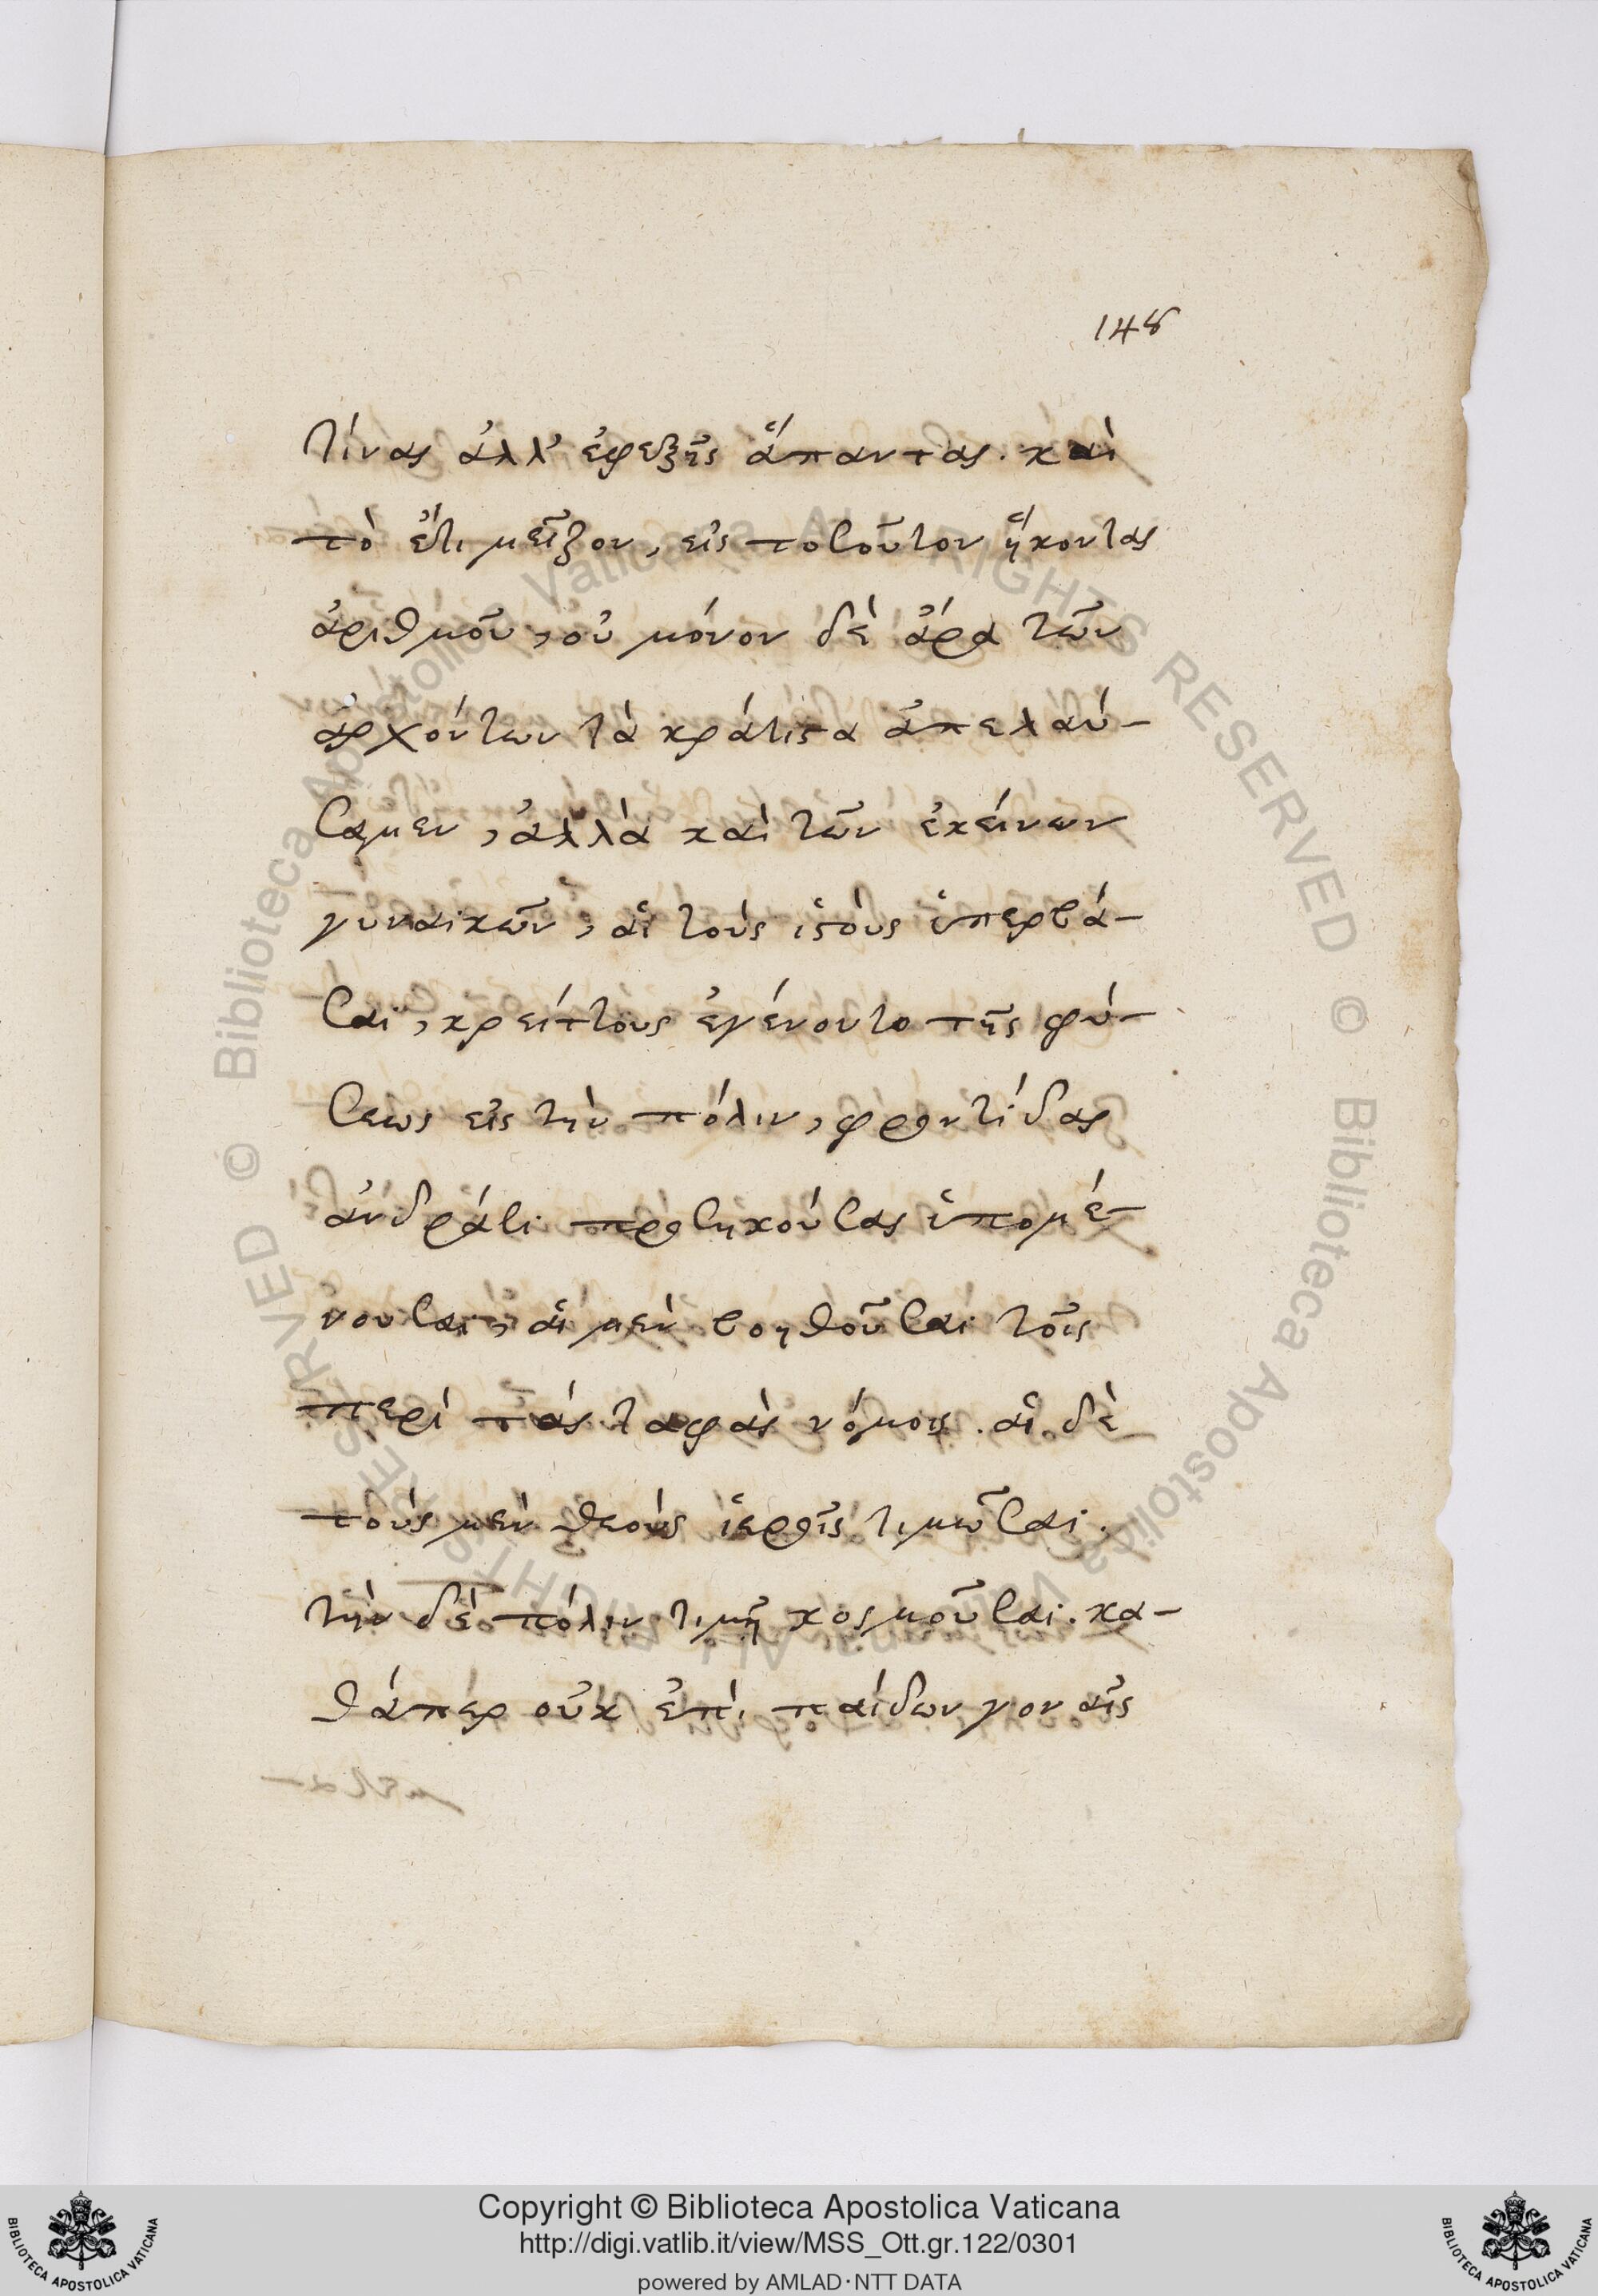 148
τίνας ἀλλ' ἐφεξῆς ἅπαντας. καὶ
τὸ ἔτι μεῖζον, εἰς τοσοῦτον ἥκοντας
ἀριθμοῦ, οὐ μόνον δὲ ἄρα τῶν
ἀρχόντων τὰ κράτιστα ἀπελαύ-
σαμεν, ἀλλὰ καὶ τῶν ἐκείνων
γυναικῶν, αἳ τοὺς ἱστοὺς ὑπερβᾶ-
σαι, κρείττους ἐγένοντο τῆς φύ-
σεως εἰς τὴν πόλιν, φροντίδας
ἀνδράσι προσηκούσας ὑπομέ-
νουσαι, αἱ μὲν βοηθοῦσαι τοῖς
περὶ τὰς ταφὰς νόμοις. αἱ δὲ
τοὺς μὲν θεοὺς ἱεροῖς τιμῶσαι.
τὴν δὲ πόλιν τιμῇ κοσμοῦσαι. κα-
θάπερ οὐκ ἐπὶ παίδων γοναῖς
© Biblioteca Apostolica Vaticana ALL RIGHTS RESERVED
© Biblioteca Apostolica Vaticana ALL RIGHTS RESERVED
Copyright © Biblioteca Apostolica Vaticana
http://digi.vatlib.it/view/MSS_Ott.gr.122/0301
powered by AMLAD·NTT DATA
BIBLIOTECA APOSTOLICA VATICANA
BIBLIOTECA APOSTOLICA VATICANA